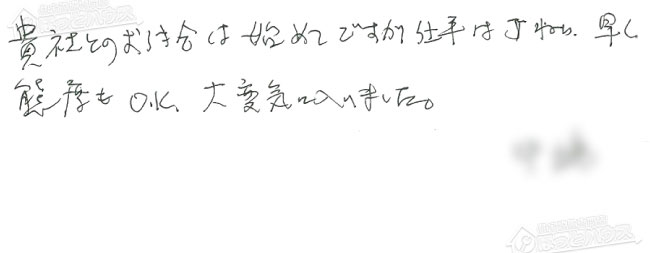 貴社とのお付き合は始めてですが仕事はきれい、早く
態度もO.K、大変気に入りました。